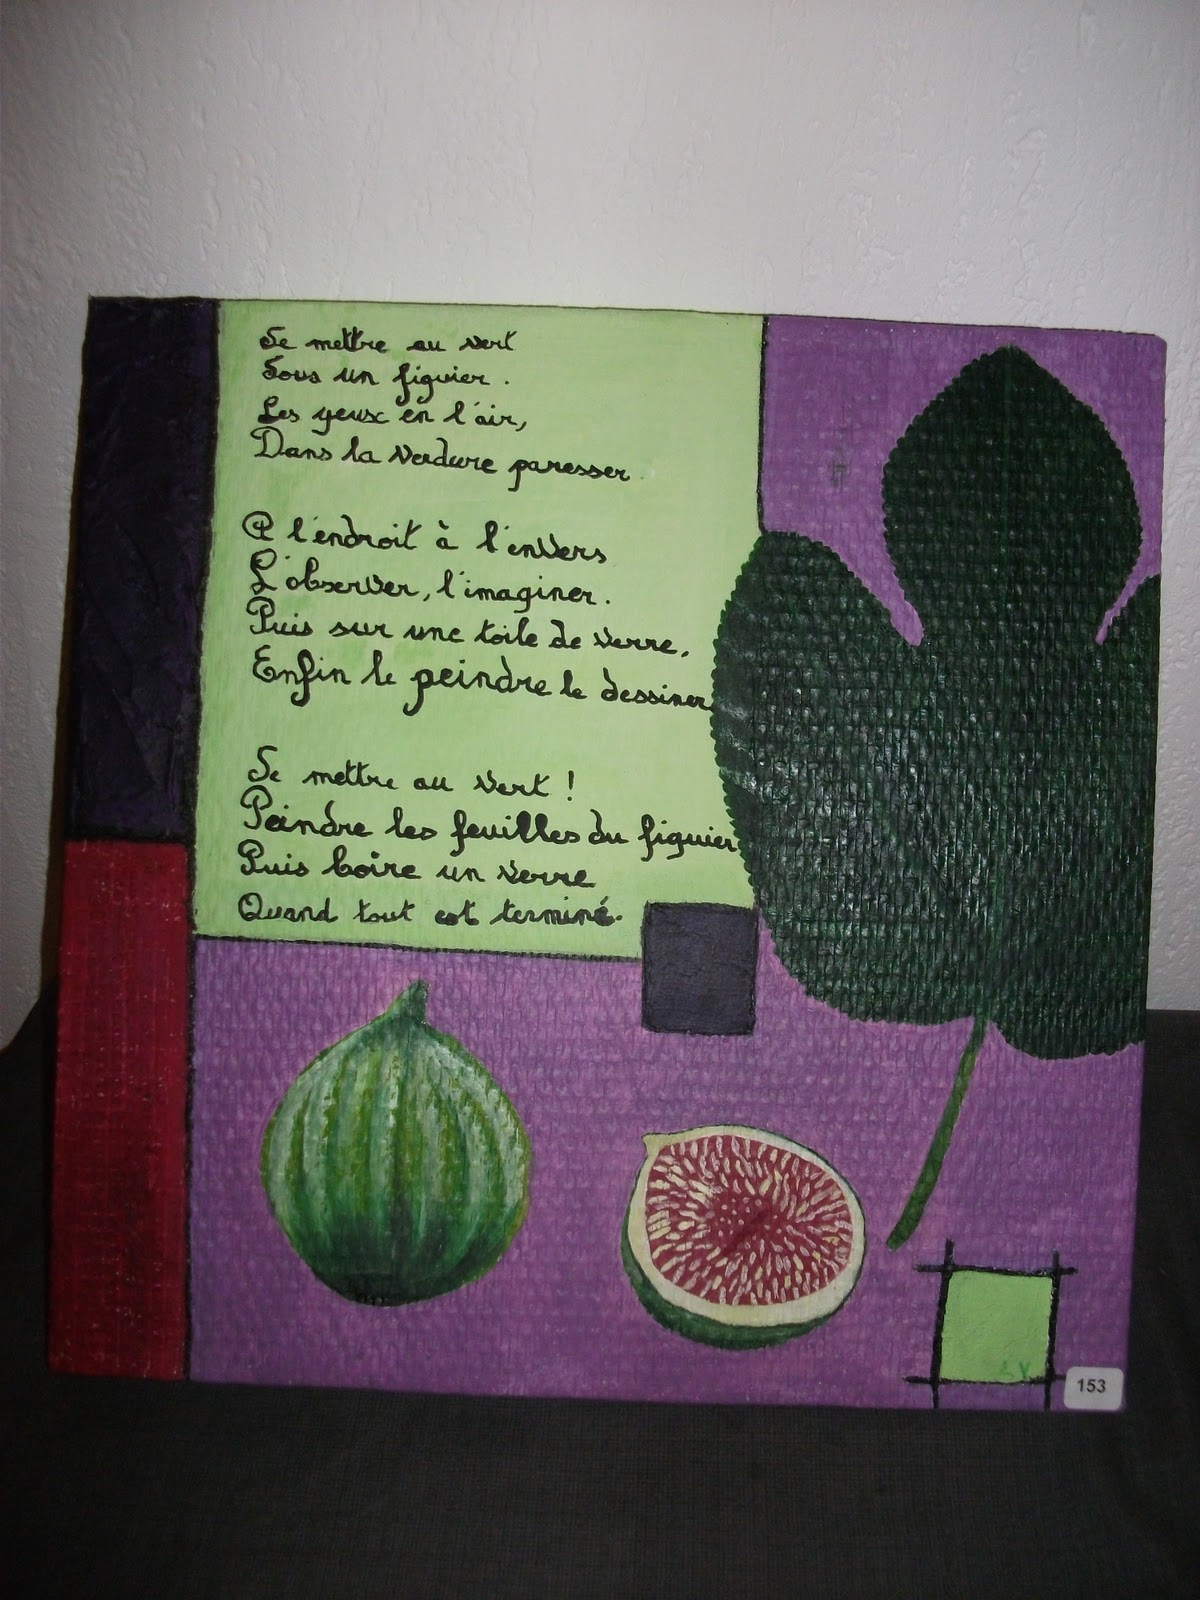 Se mettre au vert
Sous un figuier.
Les yeux en l'air,
Dans la verdure paresser

A l'endroit à l'envers
L'observer, l'imaginer.
Puis sur une toile de verre,
Enfin le peindre le dessiner

Se mettre au vert !
Peindre les feuilles du figuier
Puis boire un verre
Quand tout est terminé.
153